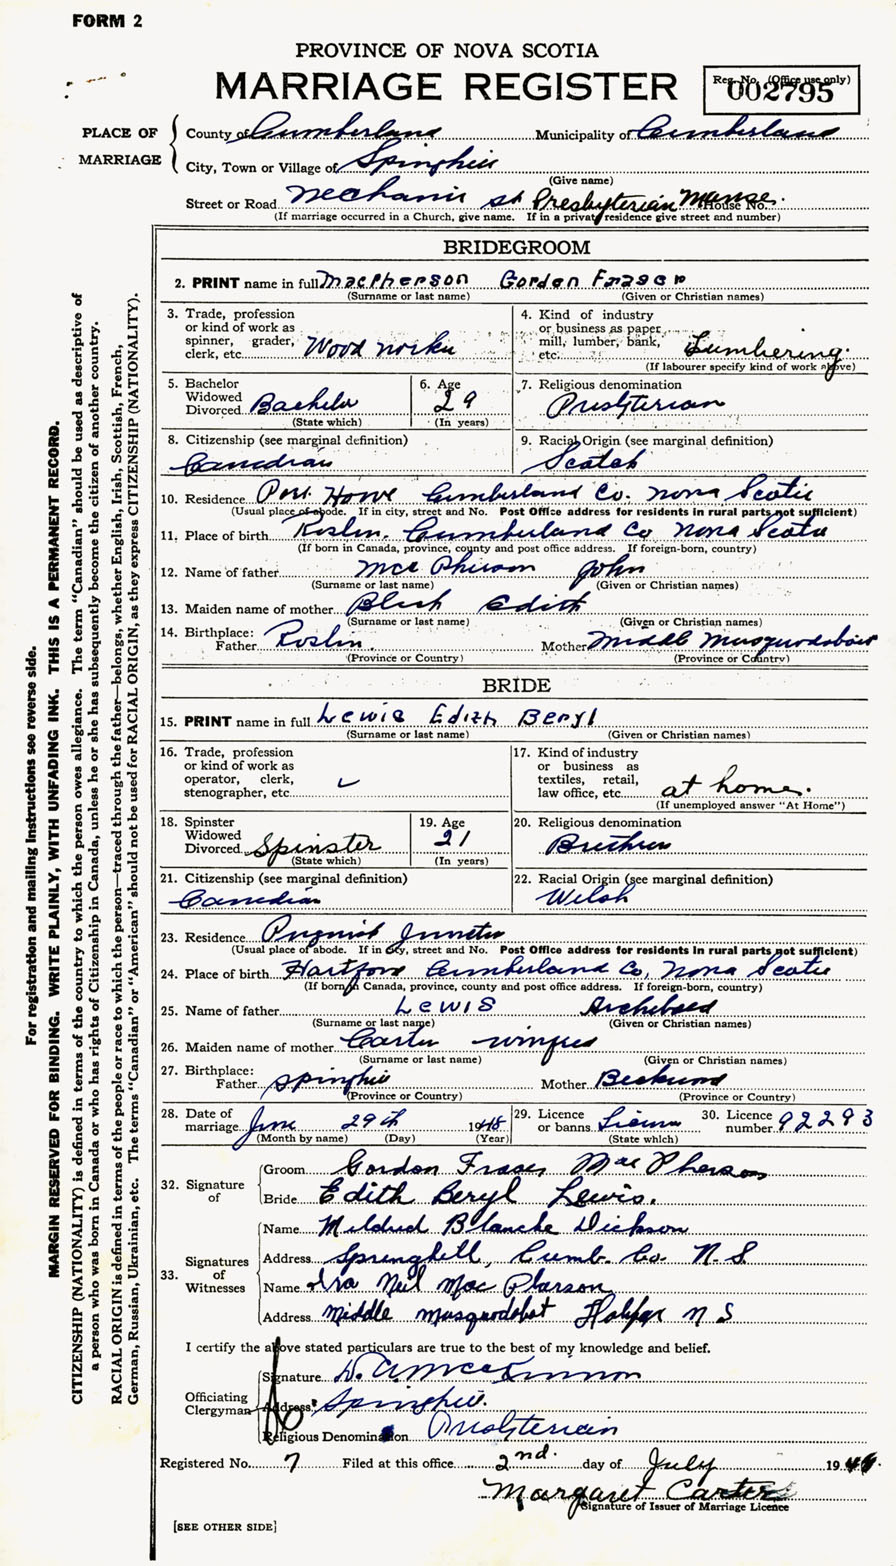 FORM 2
PROVINCE OF NOVA SCOTIA
MARRIAGE REGISTER
Reg. No. (Office use only)
002795
PLACE OF MARRIAGE
County of Cumberland Municipality of Cumberland
City, Town or Village of Springhill
(Give name)
Street or Road Mechanic St Presbyterian Manse. House No.
(If marriage occurred in a Church, give name. If in a private residence give street and number)
BRIDEGROOM
2. PRINT name in full MacPherson Gordon Fraser
(Surname or last name) (Given or Christian names)
3. Trade, profession or kind of work as spinner, grader, clerk, etc. Wood worker
4. Kind of industry or business as paper mill, lumber, bank, etc. Lumbering.
(If labourer specify kind of work above)
5. Bachelor Widowed Divorced Bachelor
(State which)
6. Age 29
(In years)
7. Religious denomination
Presbyterian
8. Citizenship (see marginal definition)
Canadian
9. Racial Origin (see marginal definition)
Scotch
10. Residence Port Howe Cumberland Co. Nova Scotia
(Usual place of abode. If in city, street and No. Post Office address for residents in rural parts not sufficient)
11. Place of birth Roslin. Cumberland Co Nova Scotia
(If born in Canada, province, county and post office address. If foreign-born, country)
12. Name of father MacPherson John
(Surname or last name) (Given or Christian names)
13. Maiden name of mother Edith
(Surname or last name) (Given or Christian names)
14. Birthplace: Father Roslin. Mother Middle Musquodoboit
(Province or Country) (Province or Country)
BRIDE
15. PRINT name in full Lewis Edith Beryl
(Surname or last name) (Given or Christian names)
16. Trade, profession or kind of work as operator, clerk, stenographer, etc.
17. Kind of industry or business as textiles, retail, law office, etc. at home.
(If unemployed answer "At Home")
18. Spinster Widowed Divorced Spinster
(State which)
19. Age 21
(In years)
20. Religious denomination
Brethren
21. Citizenship (see marginal definition)
Canadian
22. Racial Origin (see marginal definition)
Welsh
23. Residence Pugwash Junction
(Usual place of abode. If in city, street and No. Post Office address for residents in rural parts not sufficient)
24. Place of birth Hartford Cumberland Co, Nova Scotia
(If born in Canada, province, county and post office address. If foreign-born, country)
25. Name of father Lewis Archibald
(Surname or last name) (Given or Christian names)
26. Maiden name of mother Carter Winifred
(Surname or last name) (Given or Christian names)
27. Birthplace: Father Springhill Mother
(Province or Country) (Province or Country)
28. Date of marriage June 29th 1948
(Month by name) (Day) (Year)
29. Licence or banns License
(State which)
30. Licence number 92293
32. Signature of
Groom Gordon Fraser MacPherson
Bride Edith Beryl Lewis.
33. Signatures of Witnesses
Name Mildred Blanche Dickson
Address Springhill, Cumb. Co. N.S.
Name Ira Neil MacPherson
Address Middle Musquodobit Halifax N S
I certify the above stated particulars are true to the best of my knowledge and belief.
Officiating Clergyman
Signature D. A. MacKinnon
Address Springhill.
Religious Denomination Presbyterian
Registered No. 7 Filed at this office 2nd. day of July 1948.
Margaret Carter
Signature of Issuer of Marriage Licence
[SEE OTHER SIDE]
For registration and mailing instructions see reverse side.
MARGIN RESERVED FOR BINDING. WRITE PLAINLY, WITH UNFADING INK. THIS IS A PERMANENT RECORD.
CITIZENSHIP (NATIONALITY) is defined in terms of the country to which the person owes allegiance. The term "Canadian" should be used as descriptive of
a person who was born in Canada or who has rights of Citizenship in Canada, unless he or she has subsequently become the citizen of another country.
RACIAL ORIGIN is defined in terms of the people or race to which the person—traced through the father—belongs, whether English, Irish, Scottish, French,
German, Russian, Ukrainian, etc. The terms "Canadian" or "American" should not be used for RACIAL ORIGIN, as they express CITIZENSHIP (NATIONALITY).